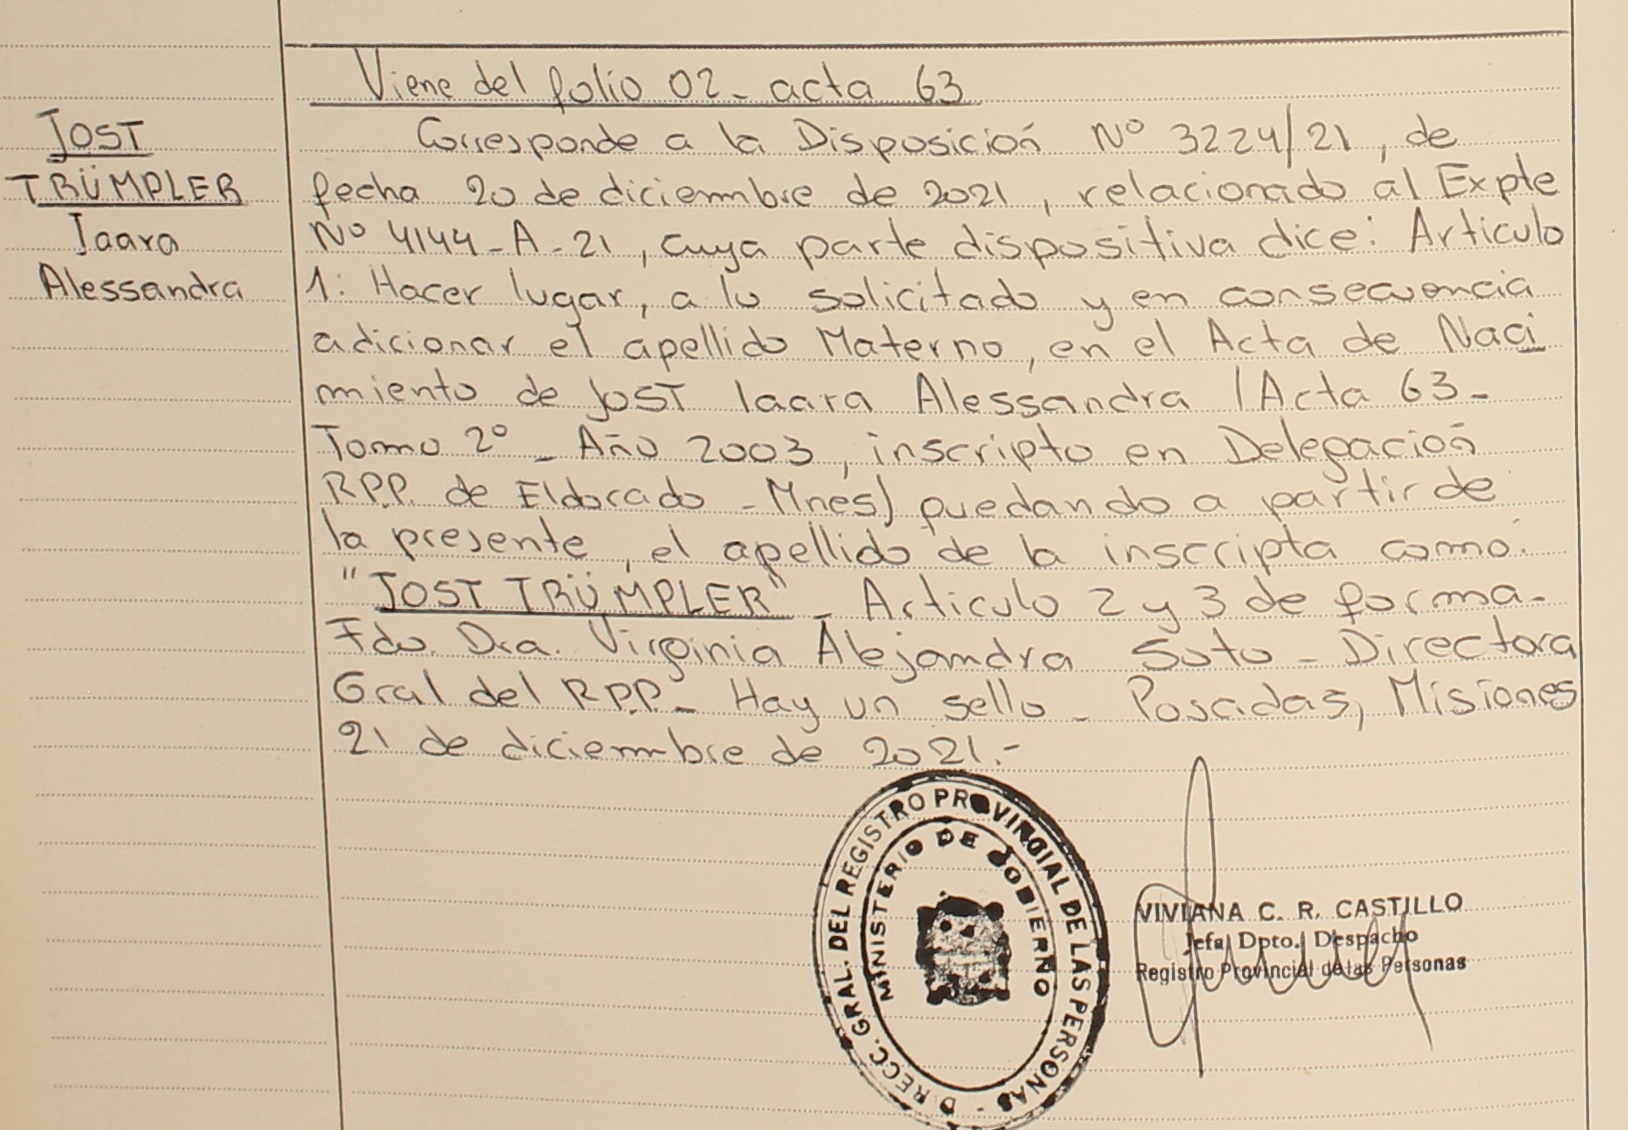 Viene del folio 02 - acta 63
JOST
TRÜMPLER
Iaara
Alessandra
Corresponde a la Disposición Nº 3224/21, de
fecha 20 de diciembre de 2021, relacionado al Expte
Nº 4144-A-21, cuya parte dispositiva dice: Articulo
1: Hacer lugar, a lo solicitado y en consecuencia
adicionar el apellido Materno, en el Acta de Naci
miento de JOST Iaara Alessandra (Acta 63-
Tomo 2º - Año 2003, inscripto en Delegación
RPP. de Eldorado - Mnes) quedando a partir de
la presente, el apellido de la inscripta como:
"JOST TRÜMPLER" - Articulo 2 y 3 de forma-
Fdo. Dra. Virginia Alejandra Soto - Directora
Gral del RPP - Hay un sello - Posadas, Misiones
21 de diciembre de 2021.-
DIRECC. GRAL. DEL REGISTRO PROVINCIAL DE LAS PERSONAS -
MINISTERIO DE GOBIERNO
VIVIANA C. R. CASTILLO
Jefa Dpto. Despacho
Registro Provincial de las Personas